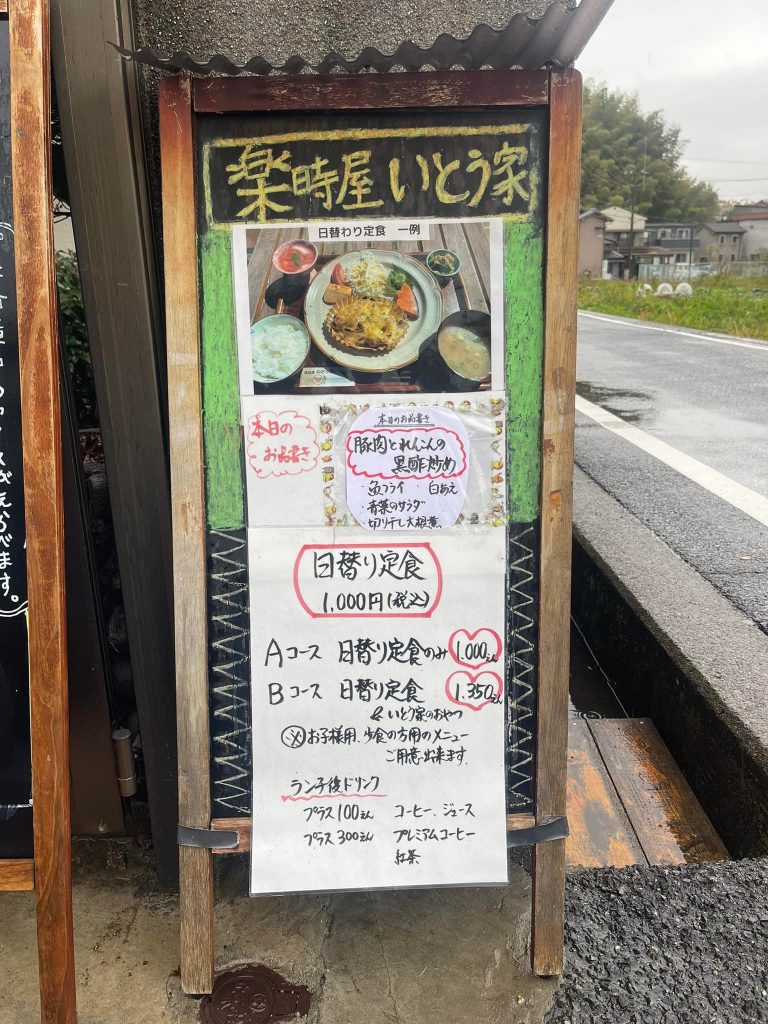 楽時屋 いとう家
日替わり定食 一例
本日の
お品書き
本日のお品書き
豚肉とれんこんの
黒酢炒め
魚フライ 白あえ
・青菜のサラダ
切り干し大根煮
日替り定食
1,000円(税込)
Aコース 日替り定食のみ 1,000えん
Bコース 日替り定食 1,350えん
& いとう家のおやつ
※お子様用、少食の方用のメニュー
ご用意出来ます。
ランチ後ドリンク
プラス100えん コーヒー、ジュース
プラス300えん プレミアムコーヒー
紅茶